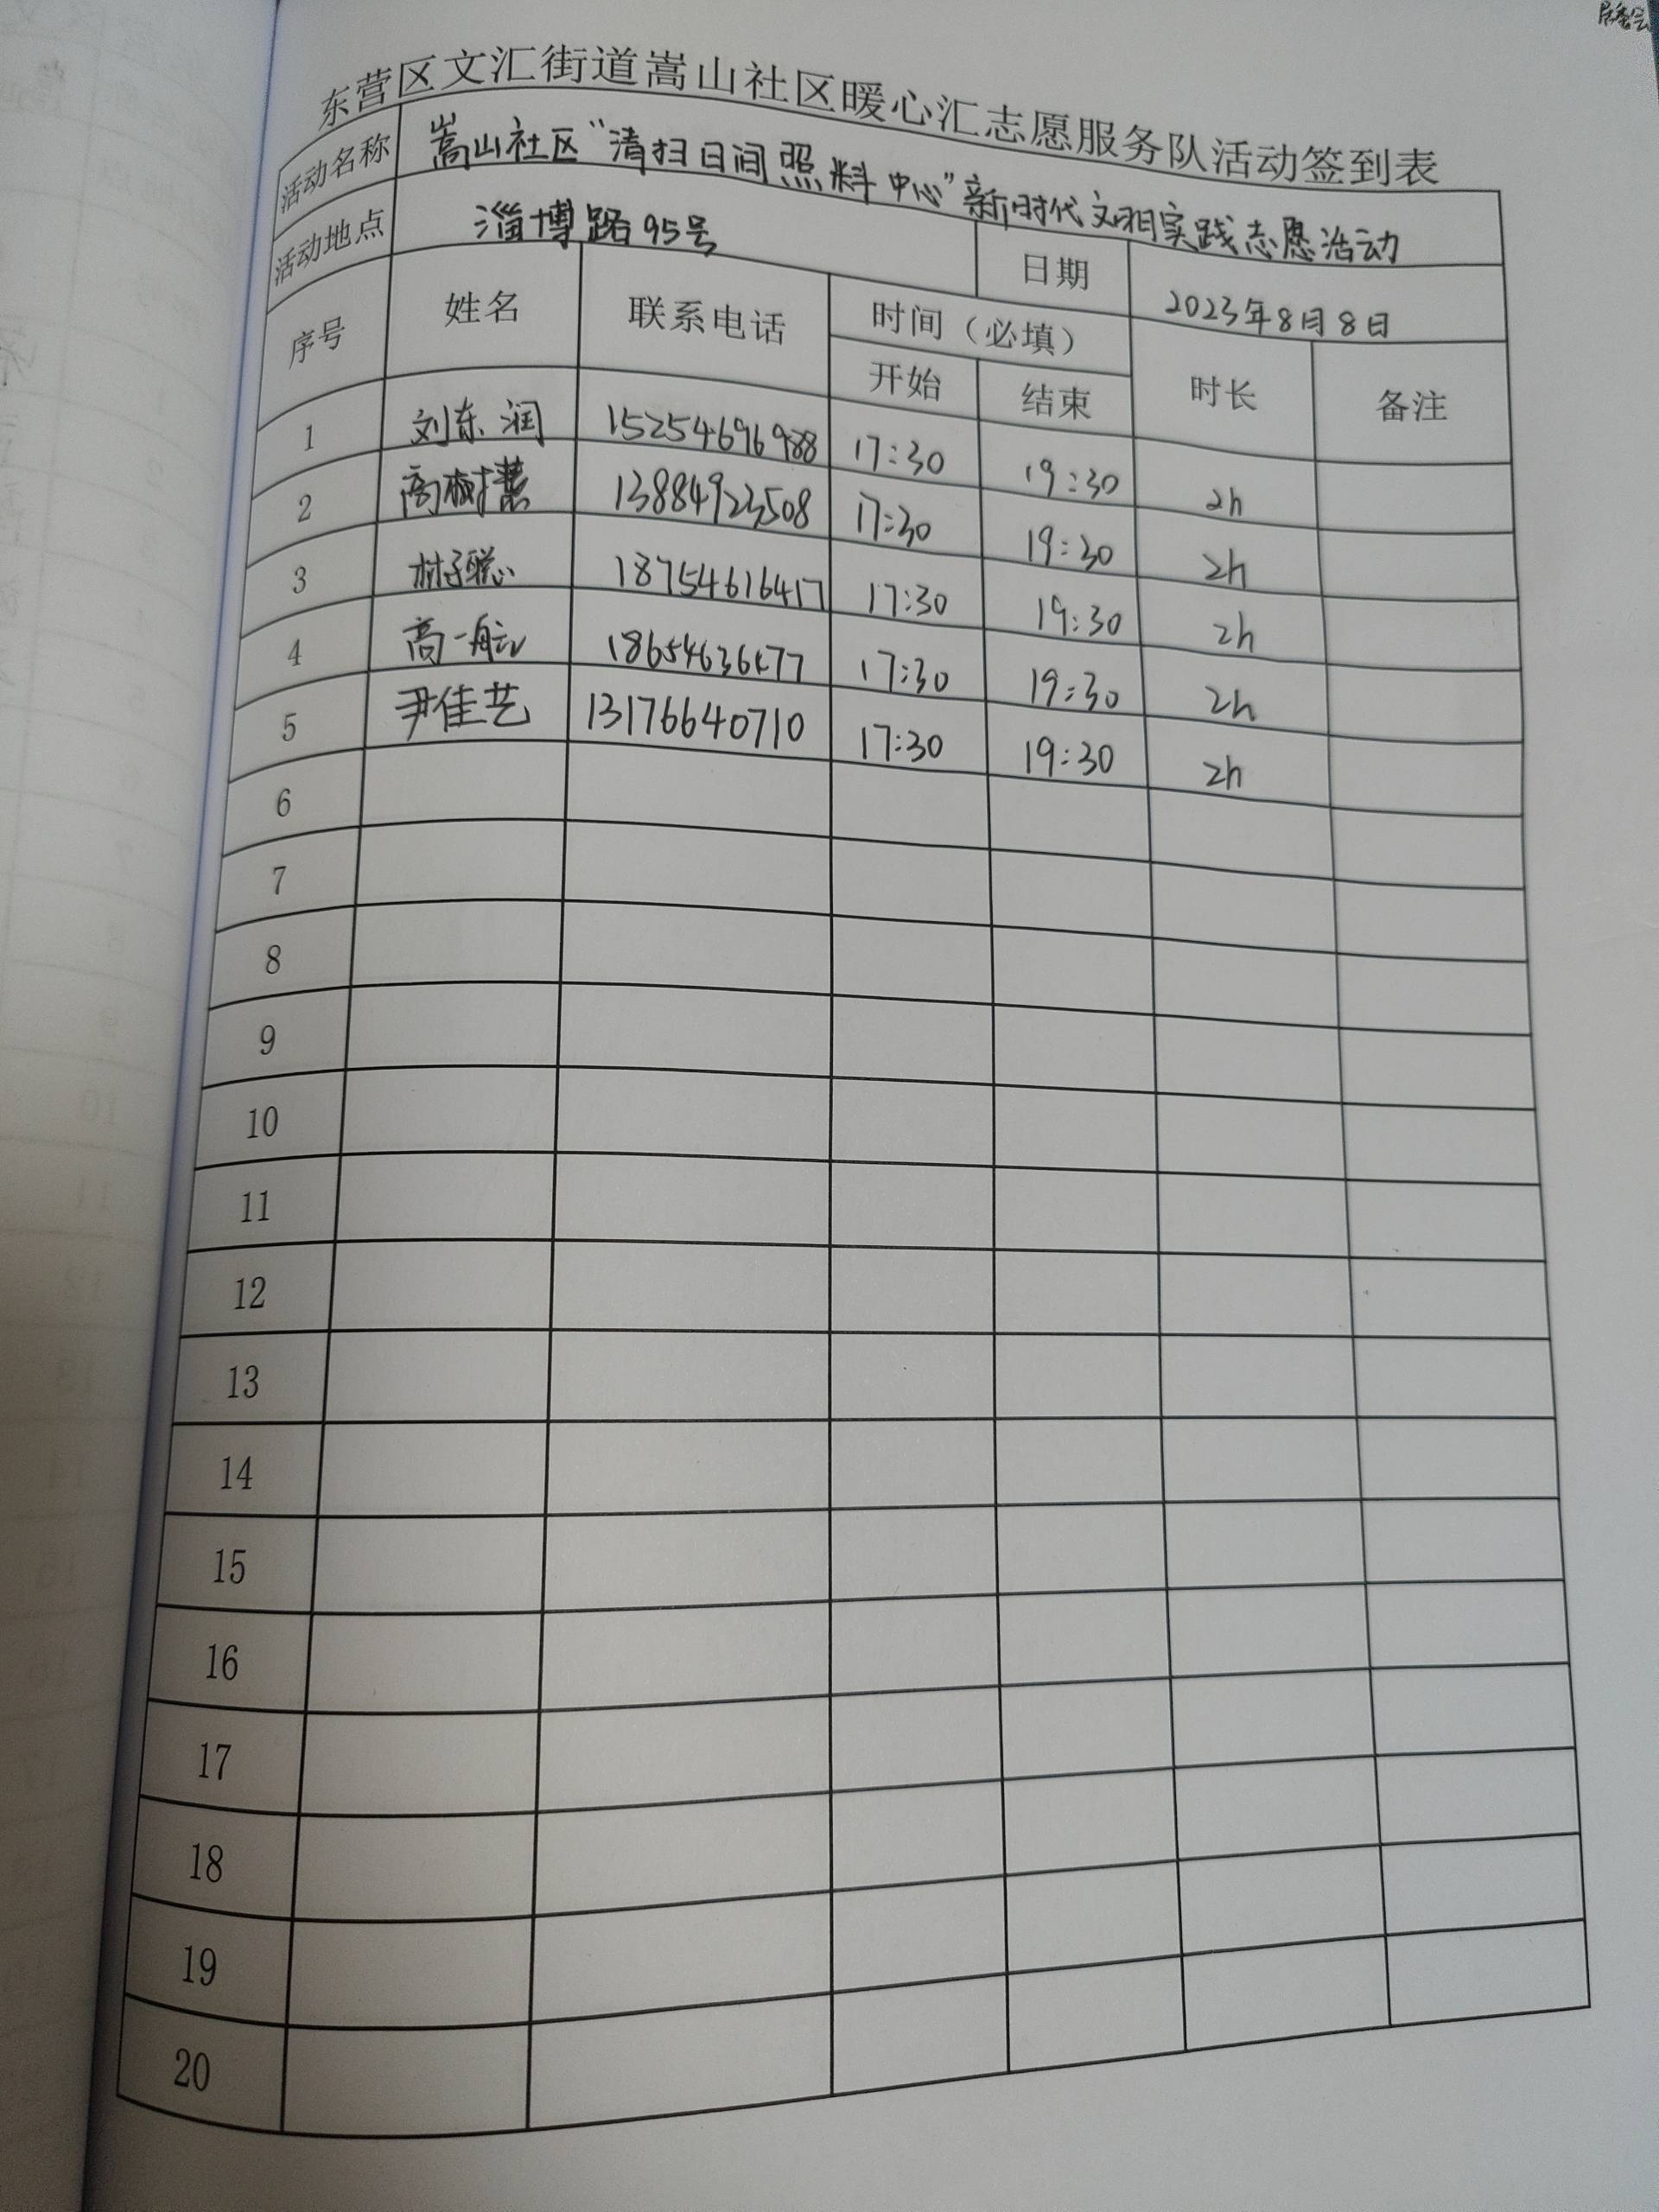 居委会
东营区文汇街道嵩山社区暖心汇志愿服务队活动签到表
活动名称 嵩山社区“清扫日间照料中心”新时代文明实践志愿活动
活动地点 淄博路95号 日期 2023年8月8日
序号 姓名 联系电话 时间（必填） 时长 备注
开始 结束
1 刘东润 15254696988 17:30 19:30 2h
2 高树 13884923508 17:30 19:30 2h
3 林子聪 18754616417 17:30 19:30 2h
4 高一航 17:30 19:30 2h
5 尹佳艺 13176640710 17:30 19:30 2h
6
7
8
9
10
11
12
13
14
15
16
17
18
19
20